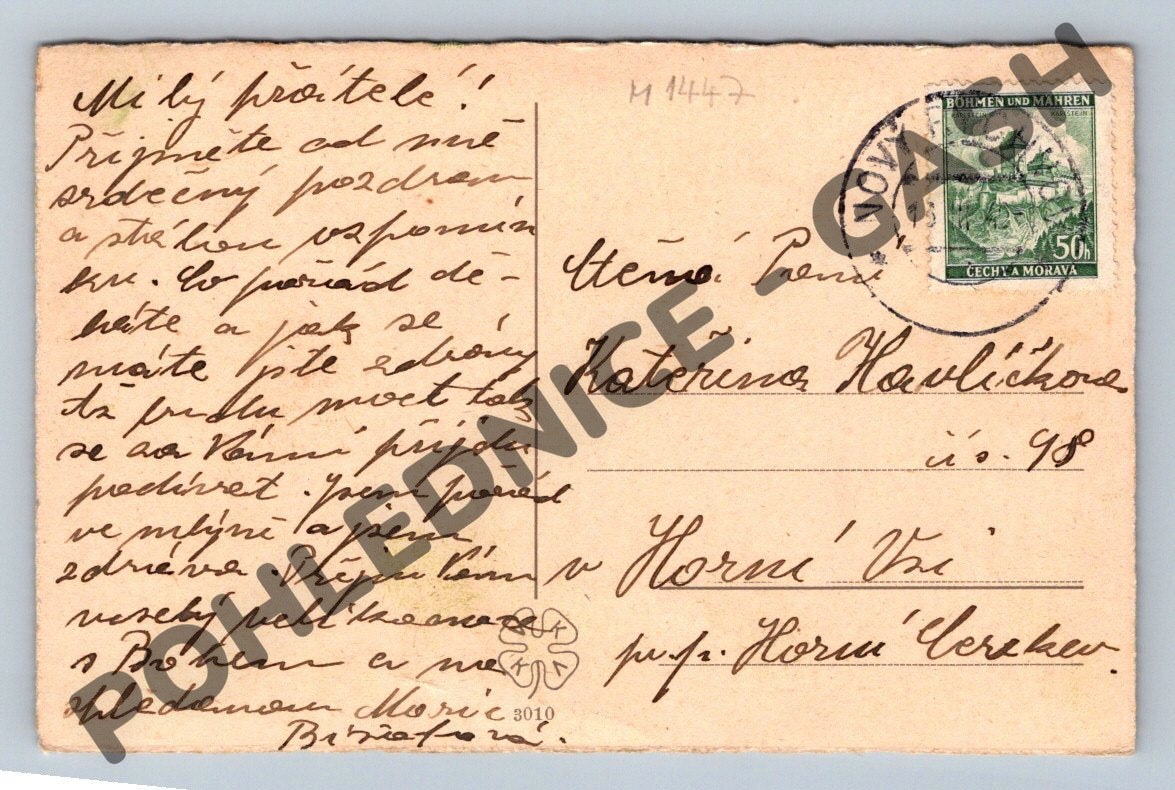 Milý přátelé!
Přijměte od mně
srdečný pozdrav
a stálou vzpomín
ku. Co pořád dě-
láte a jak se
máte jste zdrávy
až budu moct tak
se na Vámi přijdu
podívat. Jsem pořád
ve mlýně a jsem
zdráva. Přeju Vám
veselý velikonoce
s Bohem a na
shledanou Marie
M 1447
BÖHMEN UND MÄHREN
KARLSTEIN KARLŠTEJN
50h
ČECHY A MORAVA
NOVÝ
Ctěná Paní
Kateřina Havlíčkova
čís. 98
v Horní Vsi
p.p. Horní Cerekev.
3010
POHLEDNICE - GASH